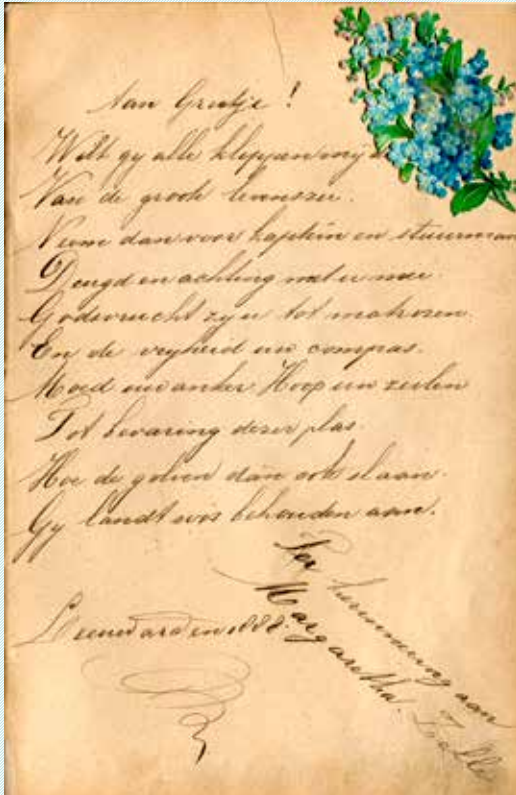 Aan Greetje!
Wilt gy alle klippen myd
Van de groote levenszee.
Neem dan voor kaptein en stuurman
Deugd en achting met u mee.
Godsvrucht zy u tot matrozen
En de vryheid uw compas.
Moed uw anker Hoop uw zeilen
Tot bevaring dezer plas.
Hoe de golven dan ook slaan.
Gy landt wis behouden aan.
Ter herinnering aan
Margaretha. Zelle
Leeuwarden 1888.